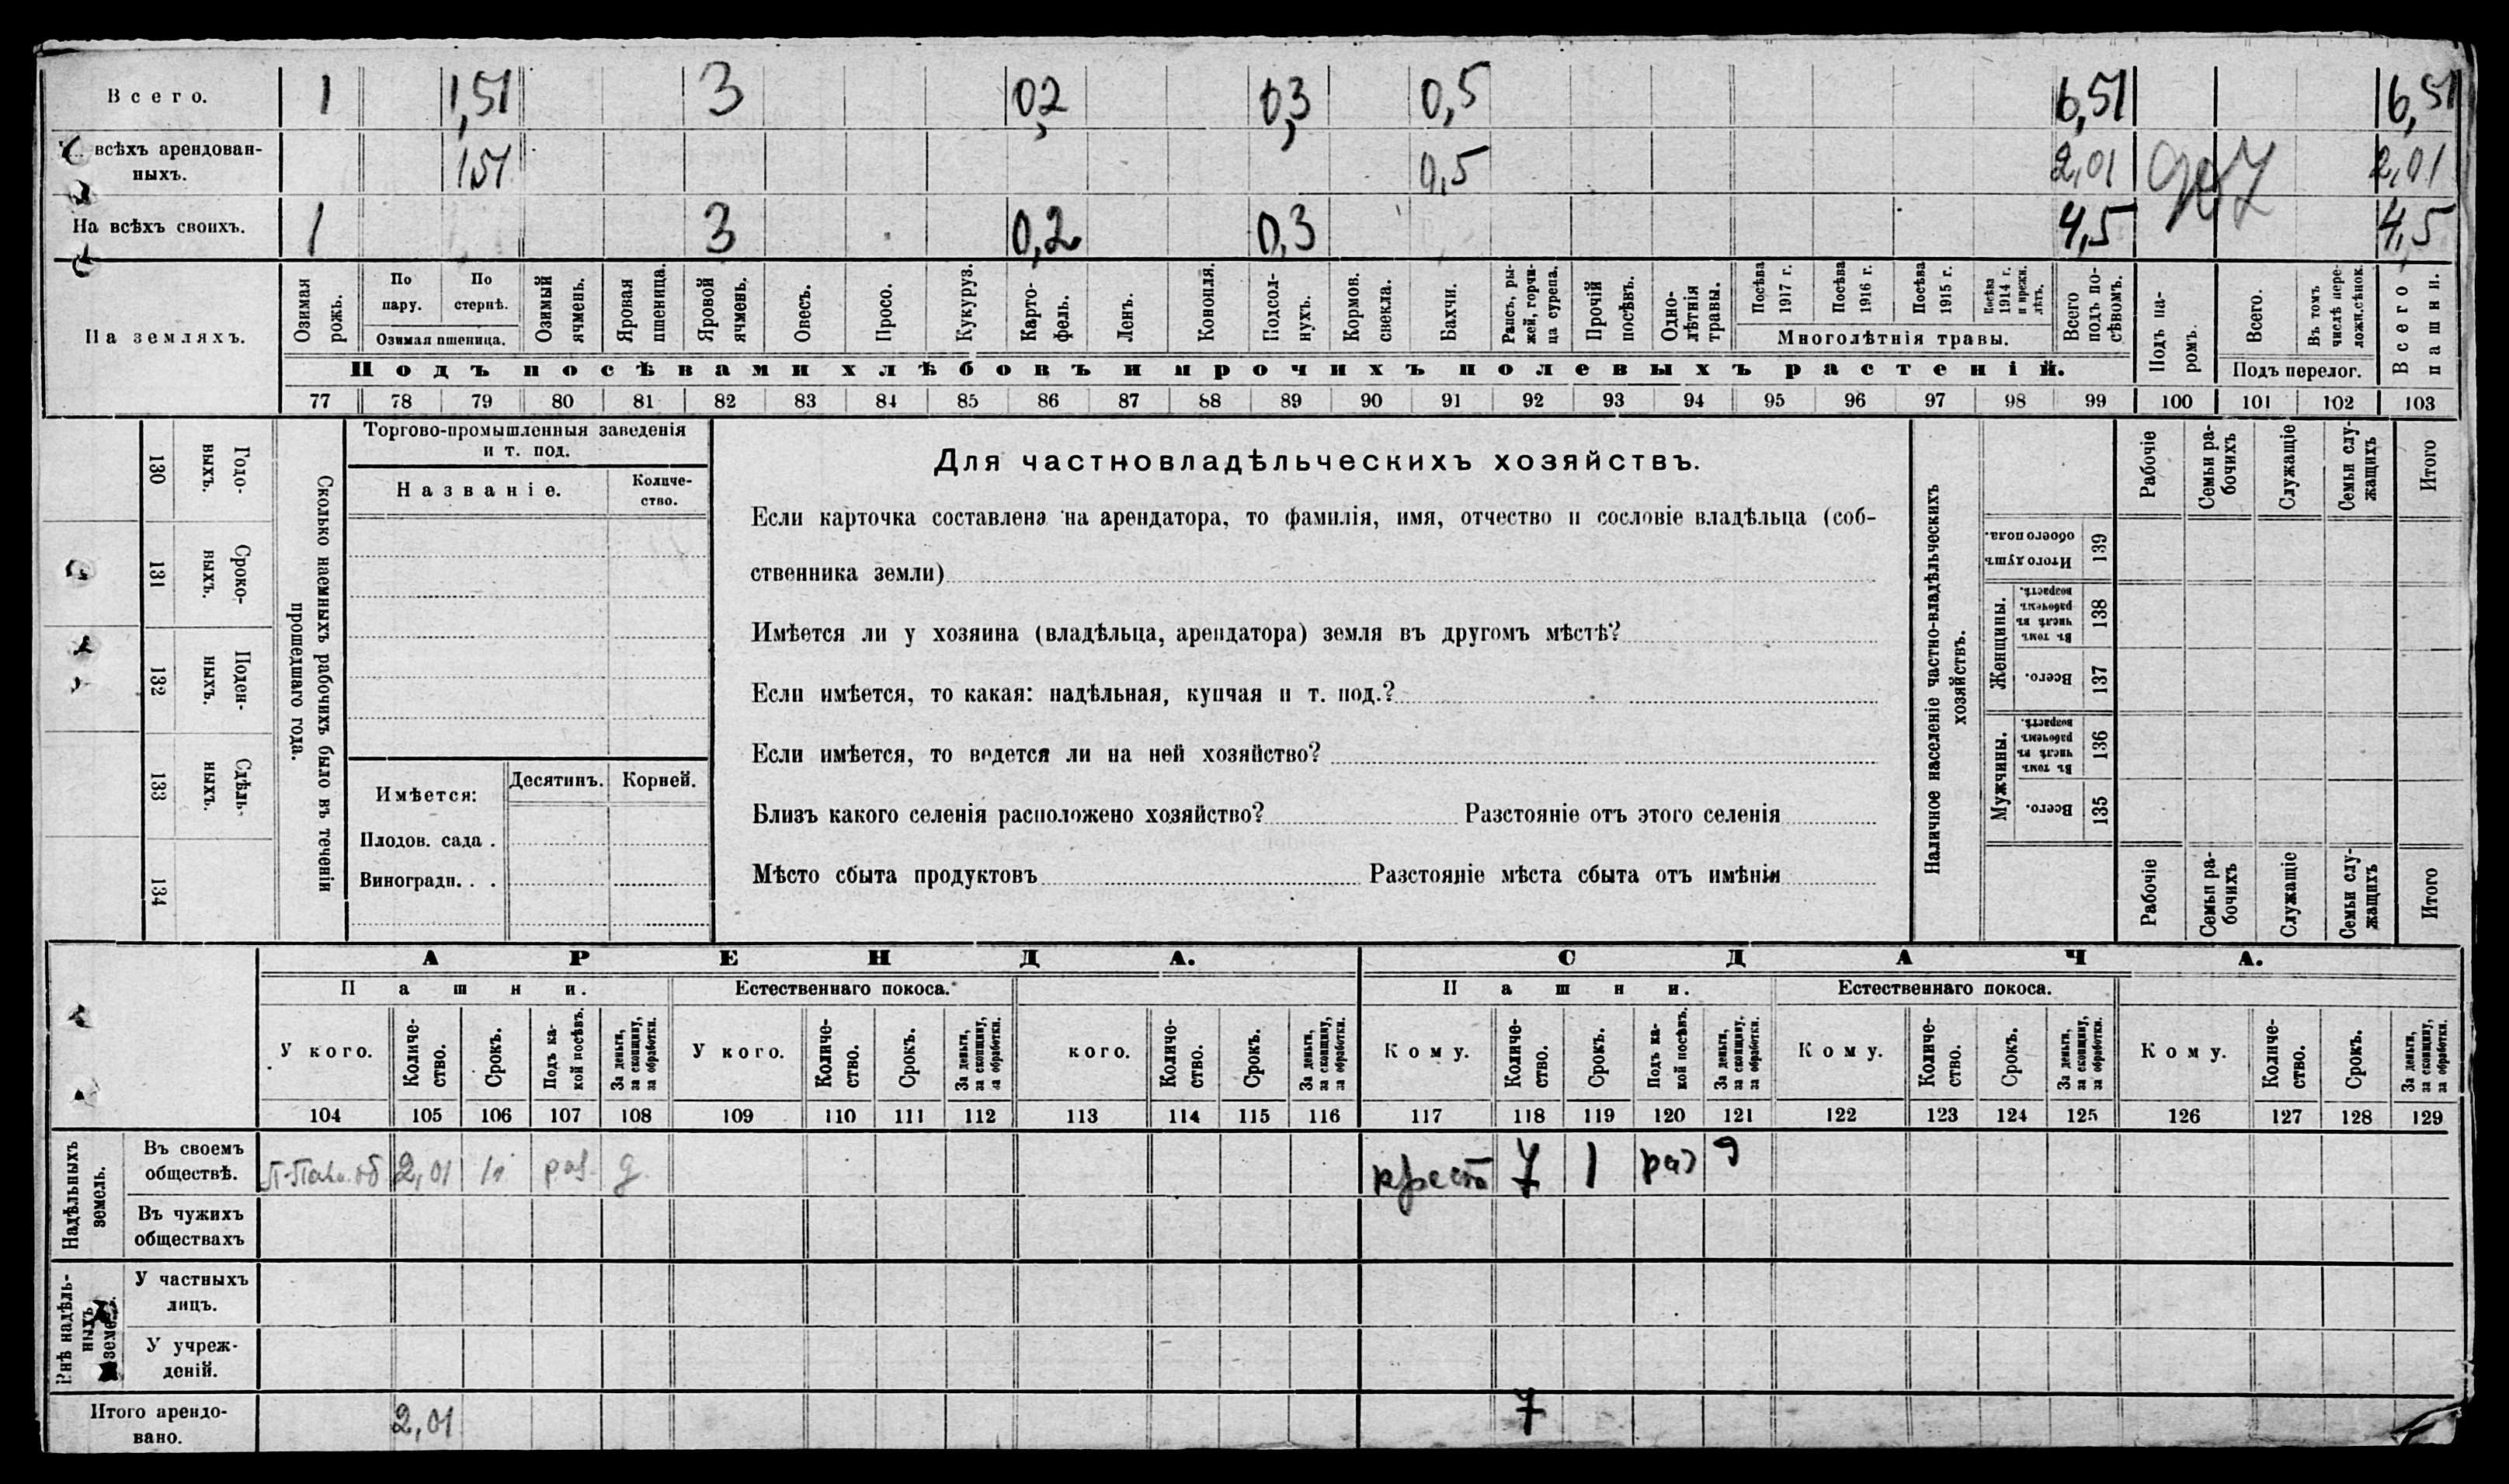 Всего. 1 1,51 3 0,2 0,3 0,5 6,51 6,51
всѣхъ арендован-
ныхъ. 1,51 0,5 2,01 2,01
На всѣхъ своихъ. 1 3 0,2 0,3 4,5 4,5
На земляхъ.
Озимая рожь.
По пару.
По стернѣ.
Озимая пшеница.
Озимый ячмень.
Яровая пшеница.
Яровой ячмень.
Овесъ.
Просо.
Кукуруз.
Карто-
фель.
Ленъ.
Конопля.
Подсол-
нухъ.
Кормов. свекла.
Бахчи.
Рапсъ, ры-
жей, горчи-
ца сурепа.
Прочій посѣвъ.
Одно-
лѣтнія
травы.
Посѣва 1917 г.
Посѣва 1916 г.
Посѣва 1915 г.
Посѣва 1914 г. и прежн. лѣтъ.
Многолѣтнія травы.
Всего подъ по-
сѣвомъ.
Подъ па-
ромъ.
Всего.
Въ томъ числѣ пере-
Подъ перелог.
Всего пашни.
Подъ посѣвами хлѣбовъ и прочихъ полевыхъ растеній.
77 78 79 80 81 82 83 84 85 86 87 88 89 90 91 92 93 94 95 96 97 98 99 100 101 102 103
130 Годо-
выхъ.
131 Сроко-
выхъ.
132 Поден-
ныхъ.
133 Сдѣль-
ныхъ.
134
Сколько наемныхъ рабочихъ было въ теченіи
прошедшаго года.
Торгово-промышленныя заведенія
и т. под.
Названіе.
Количе-
ство.
Имѣется:
Десятинъ. Корней.
Плодов. сада .
Виноградн. . .
Для частновладѣльческихъ хозяйствъ.
Если карточка составлена на арендатора, то фамилія, имя, отчество и сословіе владѣльца (соб-
ственника земли)
Имѣется ли у хозяина (владѣльца, арендатора) земля въ другомъ мѣстѣ?
Если имѣется, то какая: надѣльная, купчая и т. под.?
Если имѣется, то ведется ли на ней хозяйство?
Близъ какого селенія расположено хозяйство? Разстояніе отъ этого селенія
Мѣсто сбыта продуктовъ Разстояніе мѣста сбыта отъ имѣнія
Наличное населеніе частно-владѣльческихъ
хозяйствъ.
Рабочіе
Семьи ра-
бочихъ
Служащіе
Семьи слу-
жащихъ
Итого
Итого душъ
обоего пола.
139
Женщины.
Въ томъ числѣ въ рабочемъ возрастѣ.
138
Всего.
137
Мужчины.
Въ томъ числѣ въ рабочемъ возрастѣ.
136
Всего.
135
Рабочіе
Семьи ра-
бочихъ
Служащіе
Семьи слу-
жащихъ
Итого
АРЕНДА. СДАЧА.
Пашни. Естественнаго покоса. Пашни. Естественнаго покоса.
У кого.
Количе-
ство.
Срокъ.
Подъ ка-
кой посѣвъ.
За деньги,
за скопщину,
за обработки.
У кого.
Количе-
ство.
Срокъ.
За деньги,
за скопщину,
за обработки.
кого.
Количе-
ство.
Срокъ.
За деньги,
за скопщину,
за обработки.
Кому.
Количе-
ство.
Срокъ.
Подъ ка-
кой посѣвъ.
За деньги,
за скопщину,
за обработки.
Кому.
Количе-
ство.
Срокъ.
За деньги,
за скопщину,
за обработки.
Кому.
Количе-
ство.
Срокъ.
За деньги,
за скопщину,
за обработки.
104 105 106 107 108 109 110 111 112 113 114 115 116 117 118 119 120 121 122 123 124 125 126 127 128 129
Надѣльныхъ
земель.
Въ своемъ
обществѣ. 2,01 раз. д. 7 1 раз д
Въ чужихъ
обществахъ
Внѣ надѣль-
ныхъ
земель.
У частныхъ
лицъ.
У учреж-
деній.
Итого арендо-
вано. 2,01 7